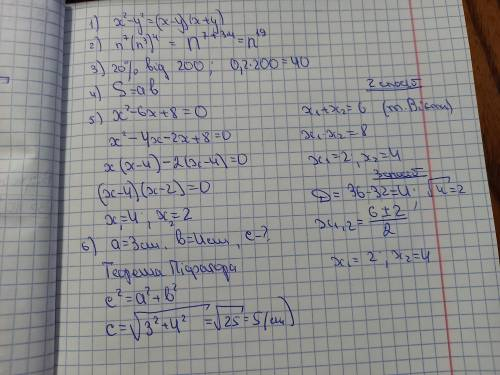 1) x²-y²=(x-y)(x+y)
2) n⁷(n³)⁴ = n⁷⁺³·⁴=n¹⁹
3) 20% від 200; 0,2·200=40
4) S=ab
5) x²-6x+8=0
x²-4x-2x+8=0
x(x-4)-2(x-4)=0
(x-4)(x-2)=0
x₁=4; x₂=2
2 спосіб
x₁+x₂=6 (т. Вієта)
x₁·x₂=8
x₁=2, x₂=4
3 спосіб
D=36-32=4; √4=2
x₁,₂=(6±2)/2
x₁=2; x₂=4
6) a=3см, b=4см, c-?
Теорема Піфагора
c²=a²+b²
c=√(3²+4²) =√25=5(см)